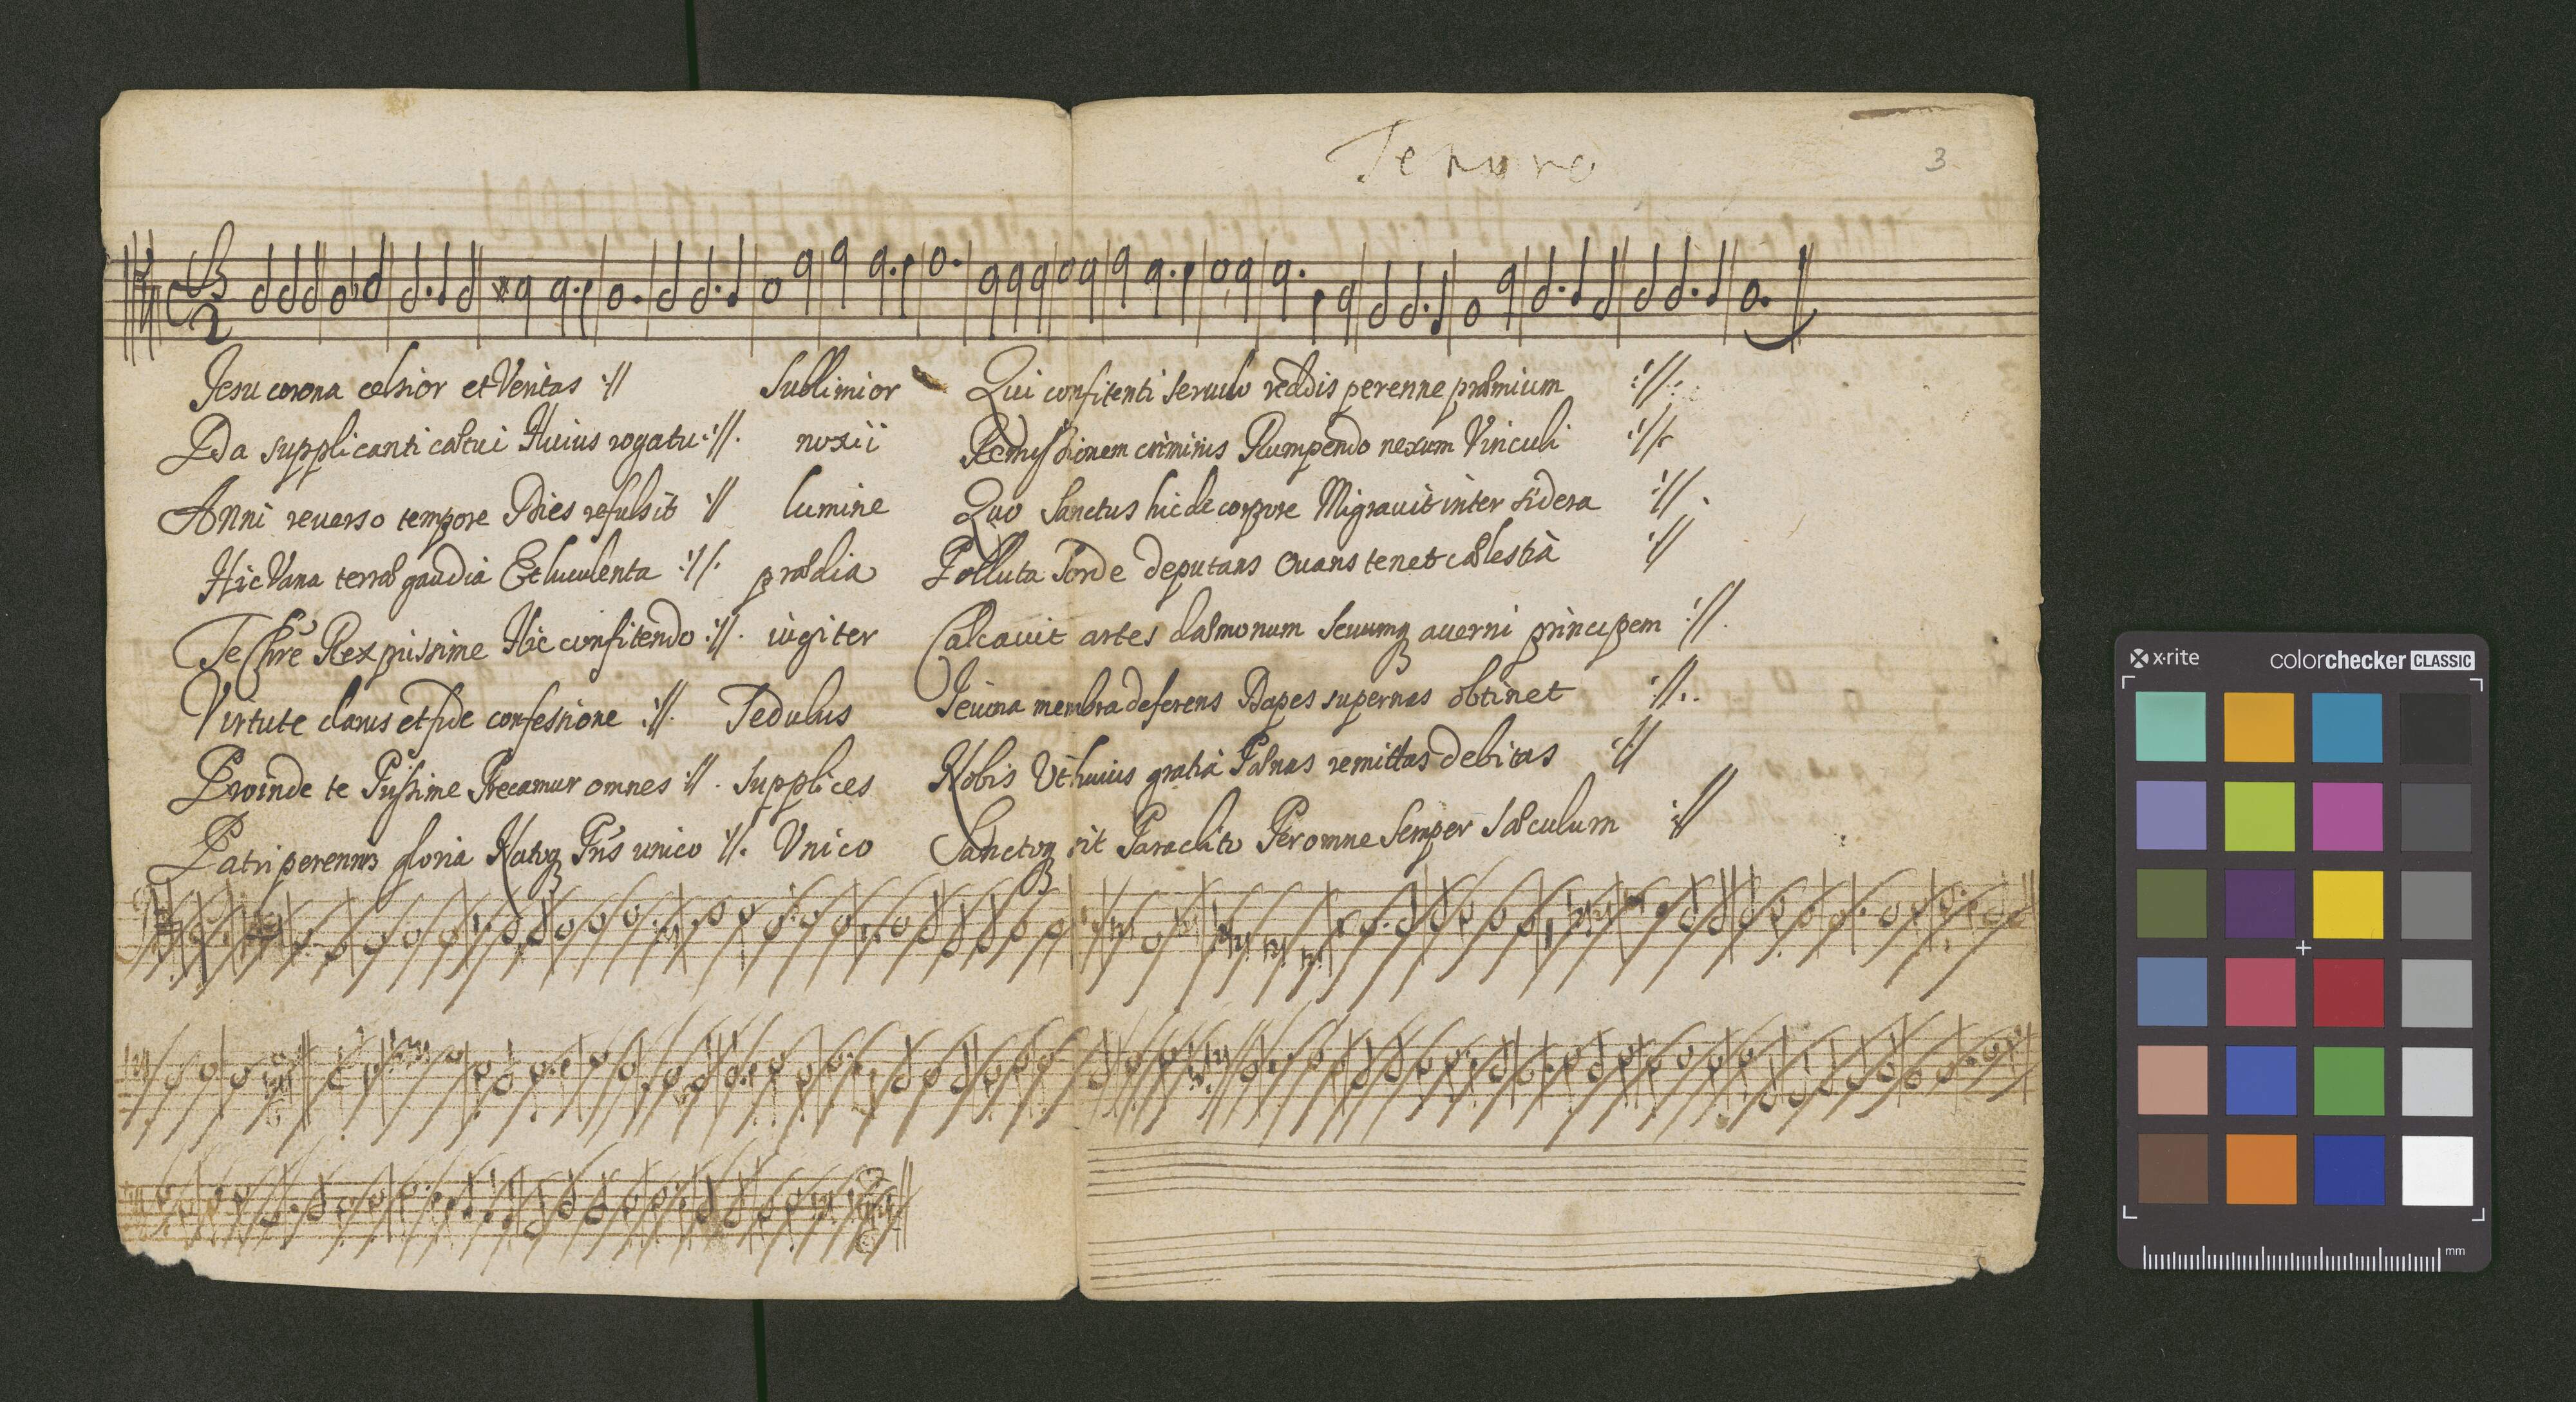 Tenore
3
Jesu corona celsior et Veritas :// Sublimior Qui confitenti servulo reddis perenne præmium ://:
Da supplicanti cætui Huius rogatu :// noxii Remissionem criminis Rumpendo nexum Vinculi ://
Anni reverso tempore Dies refulsit :// lumine Quo Sanctus hic de corpore Migravit inter sidera ://.
Hic Vana terræ gaudia Et luculenta :// prædia Polluta Sorde deputans Ovans tenet cælestia ://
Te Chrē Rex piissime Hic confitendo :// iugiter Calcavit artes dæmonum Sevumq averni principem ://
Virtute clarus et fide confessione :// Sedulus Ieiuna membra deferens Dapes supernas obtinet ://.
Proinde te Piissime Precamur omnes :// supplices Nobis Ut huius gratia Pænas remittas debitas ://
Patri perennis gloria Natoq Pris unico :// Unico Sanctoq sit Paraclito Per omne Semper Sæculum ://
x·rite colorchecker CLASSIC
mm